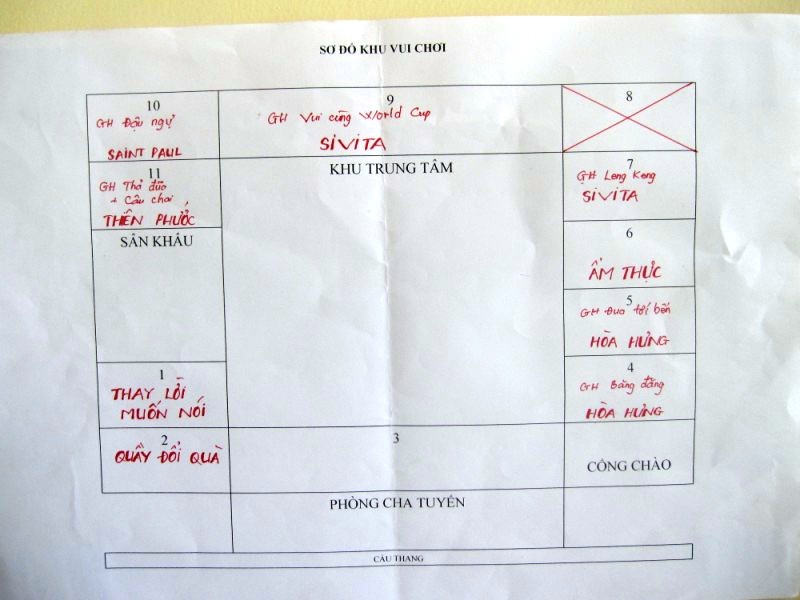 SƠ ĐỒ KHU VUI CHƠI
10
GH Đậu ngự
SAINT PAUL
9
GH Vui cùng World Cup
SIVITA
8
11
GH Thả đũa
+ Câu chai
THIÊN PHƯỚC
KHU TRUNG TÂM
7
GH Leng Keng
SIVITA
SÂN KHẤU
6
ẨM THỰC
5
GH Đua tới bến
HÒA HƯNG
1
THAY LỜI
MUỐN NÓI
4
GH Băng đăng
HÒA HƯNG
2
QUẦY ĐỔI QUÀ
3
CỔNG CHÀO
PHÒNG CHA TUYÊN
CẦU THANG